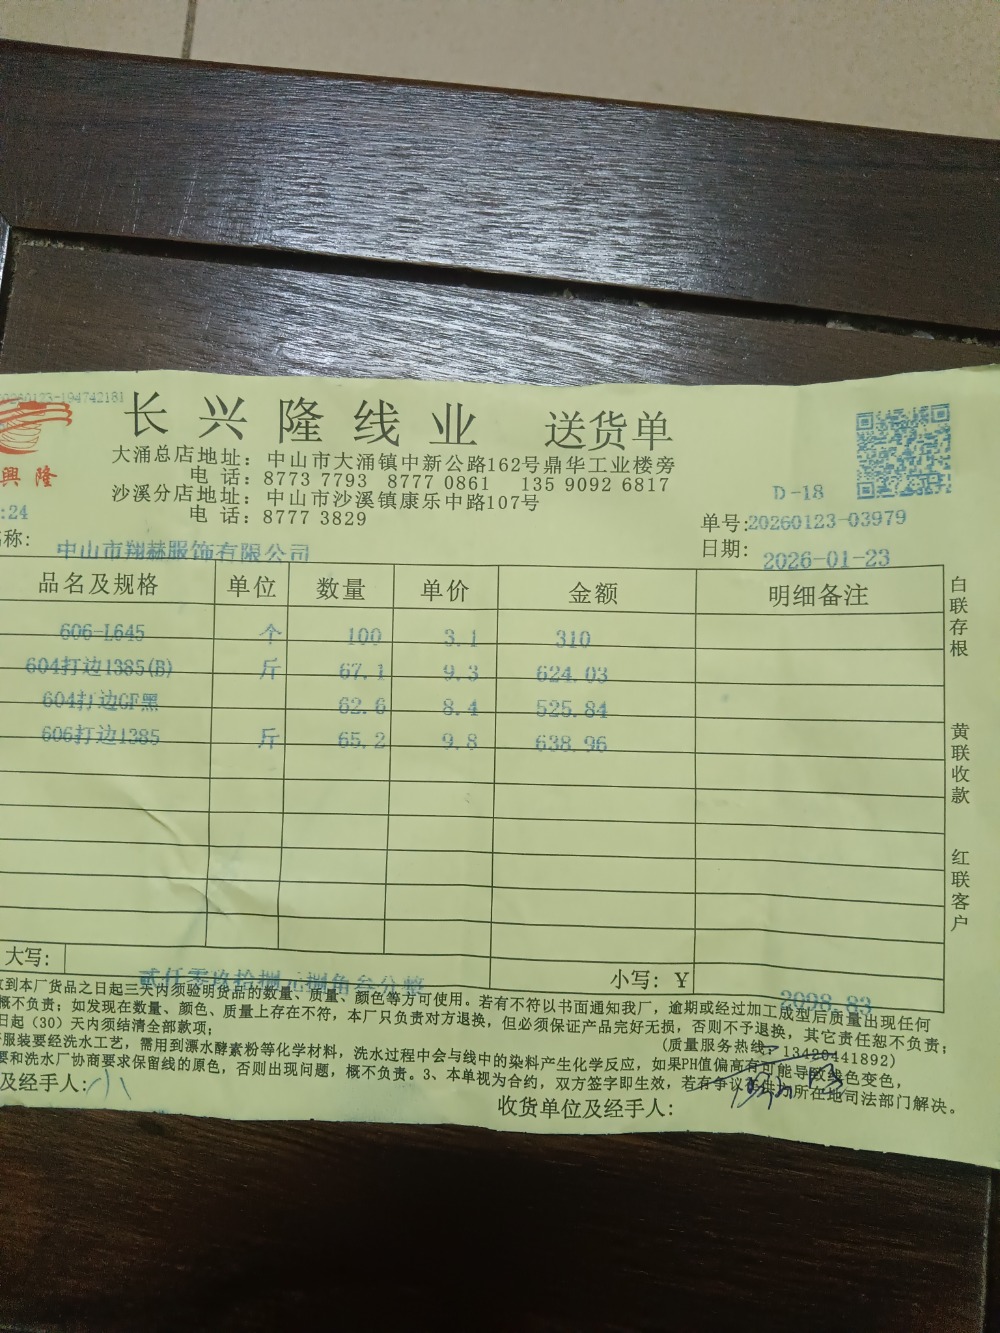 20260123-194742181
長興隆
长兴隆线业 送货单
大涌总店地址：中山市大涌镇中新公路162号鼎华工业楼旁
电 话：8773 7793 8777 0861 135 9092 6817
沙溪分店地址：中山市沙溪镇康乐中路107号
电 话：8777 3829
D-18
:24
单号:20260123-03979
称: 中山市翔赫服饰有限公司
日期: 2026-01-23
品名及规格 单位 数量 单价 金额 明细备注
606-L645 个 100 3.1 310
604打边1385(B) 斤 67.1 9.3 624.03
604打边GF黑 62.6 8.4 525.84
606打边1385 斤 65.2 9.8 638.96
白联存根
黄联收款
红联客户
大写: 贰仟零玖拾捌元捌角叁分整 小写: ￥ 2098.83
到本厂货品之日起三天内须验明货品的数量、质量、颜色等方可使用。若有不符以书面通知我厂，逾期或经过加工成型后质量出现任何
概不负责；如发现在数量、颜色、质量上存在不符，本厂只负责对方退换，但必须保证产品完好无损，否则不予退换，其它责任恕不负责；
日起（30）天内须结清全部款项； (质量服务热线：13420441892)
服装要经洗水工艺，需用到漂水酵素粉等化学材料，洗水过程中会与线中的染料产生化学反应，如果PH值偏高有可能导致线色变色，
要和洗水厂协商要求保留线的原色，否则出现问题，概不负责。3、本单视为合约，双方签字即生效，若有争议于供方所在地司法部门解决。
及经手人: 小
收货单位及经手人: